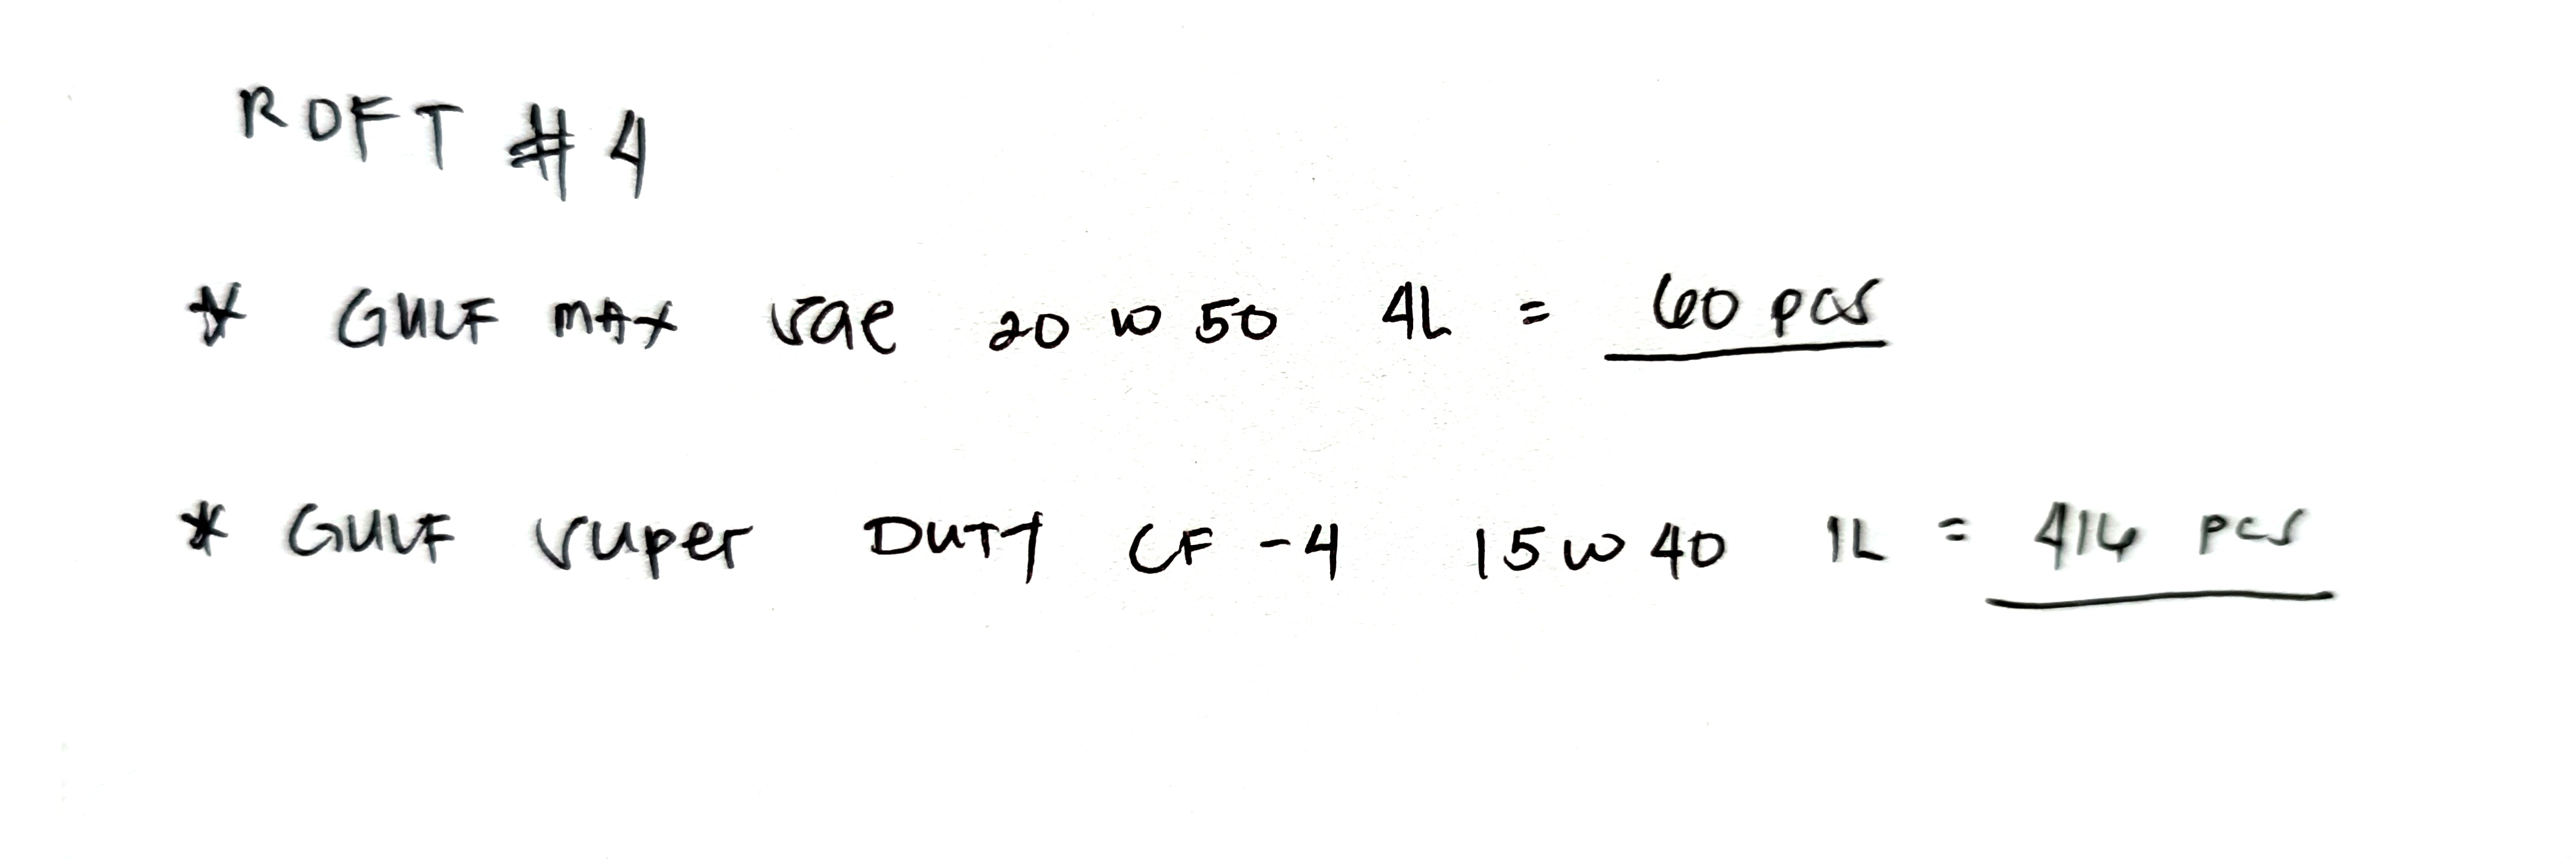 RDFT # 4
* GULF MAX sae 20 W 50 4L = 60 pcs
* GULF super DUTY CF -4 15 W 40 1L = 416 pcs